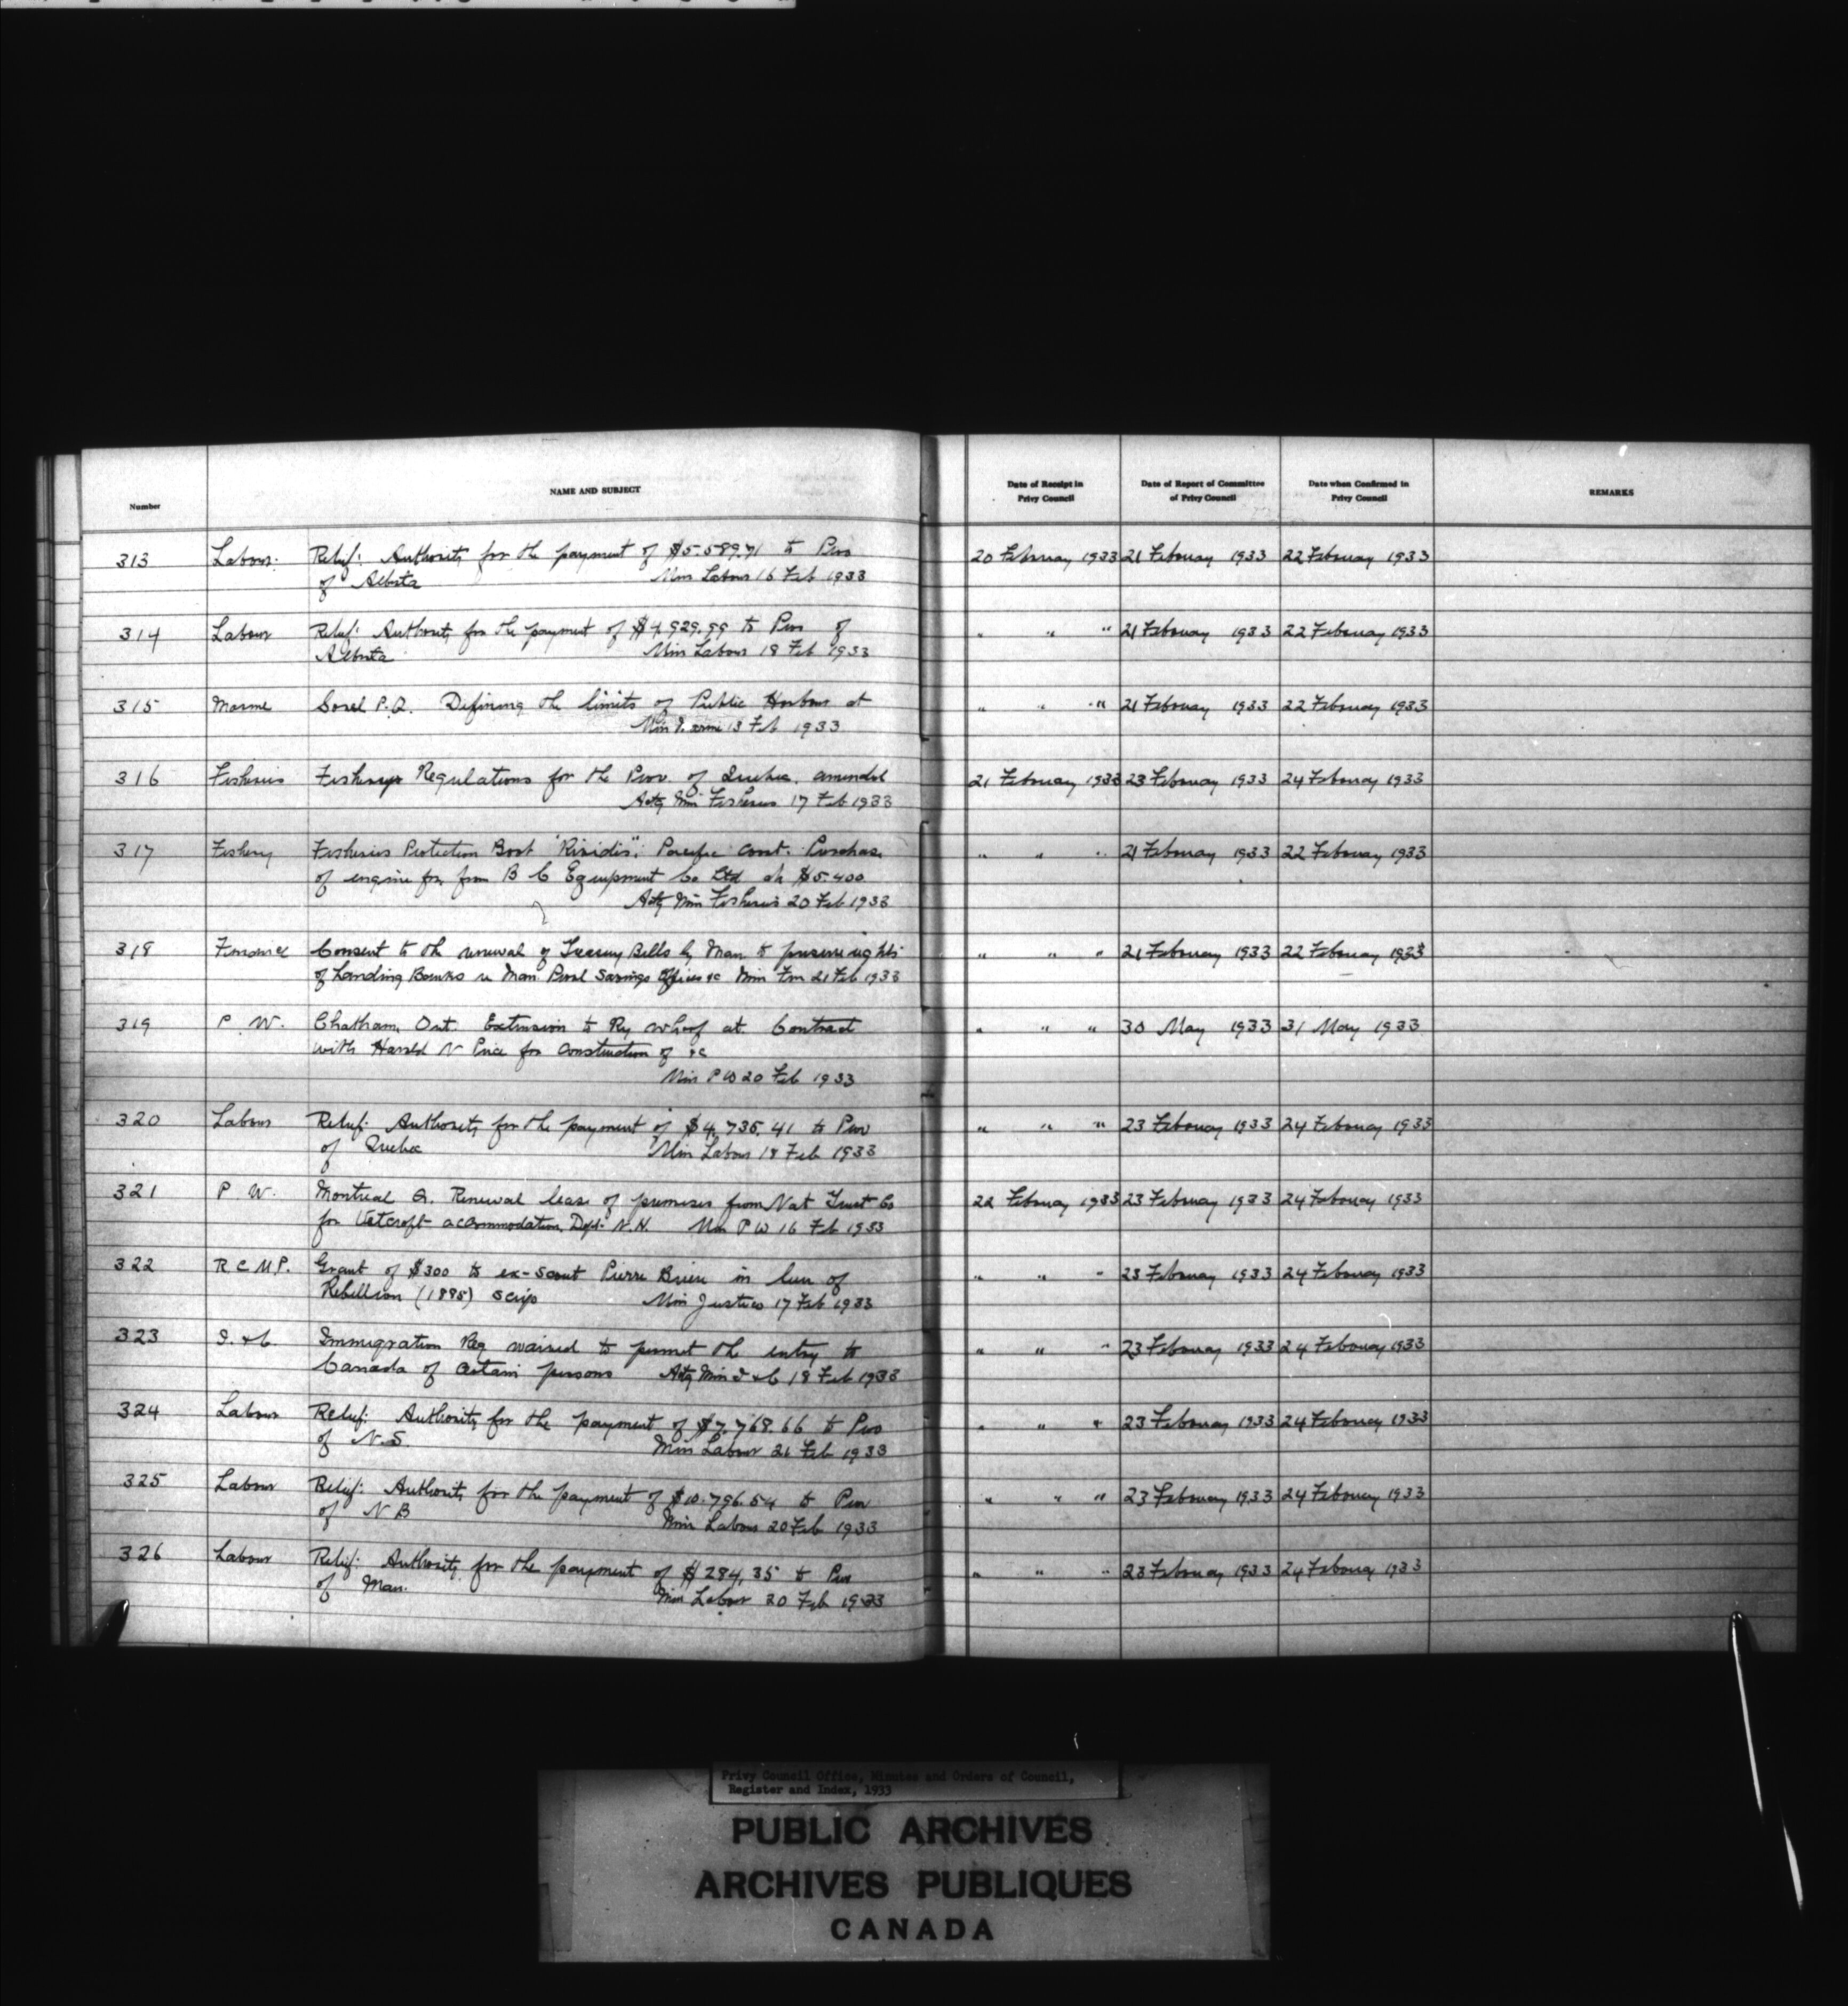 Number
NAME AND SUBJECT
Date of Receipt in Privy Council
Date of Report of Committee of Privy Council
Date when Confirmed in Privy Council
REMARKS
313 Labour. Relief: Authority for the payment of $5.589.71 to Prov 20 February 1933 21 February 1933 22 February 1933
of Alberta Min Labour 16 Feb 1933
314 Labour Relief: Authority for the payment of $4,929.99 to Prov of " " " 21 February 1933 22 February 1933
Alberta Min Labour 18 Feb 1933
315 Marine Sorel P.Q. Defining the limits of Public Harbour at " " " 21 February 1933 22 February 1933
Min Marine 13 Feb 1933
316 Fisheries Fishery Regulations for the Prov. of Quebec, amended 21 February 1933 23 February 1933 24 February 1933
Actg Min Fisheries 17 Feb 1933
317 Fishery Fisheries Protection Boat "Rividis": Pacific Coast. Purchase " " " 21 February 1933 22 February 1933
of engine for from B C Equipment Co Ltd at $5.400
Actg Min Fisheries 20 Feb 1933
318 Finance Consent to the renewal of Treasury Bills by Man to preserve rights " " " 21 February 1933 22 February 1933
of Lending Banks re Man. Provl Savings Offices &c Min Fin 21 Feb 1933
319 P. W. Chatham, Ont. Extension to Ry wharf at Contract " " " 30 May 1933 31 May 1933
with Harold N Price for construction of &c
Min P W 20 Feb 1933
320 Labour Relief: Authority for the payment of $4,735.41 to Prov " " " 23 February 1933 24 February 1933
of Quebec Min Labour 18 Feb 1933
321 P W. Montreal Q. Renewal lease of premises from Nat Trust Co 22 February 1933 23 February 1933 24 February 1933
for Vetcraft accommodation, Dept. N.H. Min P W 16 Feb 1933
322 R C M P. Grant of $300 to ex-scout Pierre Briere in lieu of " " " 23 February 1933 24 February 1933
Rebellion (1885) Scrip Min Justice 17 Feb 1933
323 I. & C. Immigration Reg waived to permit the entry to " " " 23 February 1933 24 February 1933
Canada of certain persons Actg Min I & C 18 Feb 1933
324 Labour Relief: Authority for the payment of $7.768.66 to Prov " " " 23 February 1933 24 February 1933
of N.S. Min Labour 21 Feb 1933
325 Labour Relief: Authority for the payment of $10.796.54 to Prov " " " 23 February 1933 24 February 1933
of N B Min Labour 20 Feb 1933
326 Labour Relief: Authority for the payment of $284.35 to Prov " " " 23 February 1933 24 February 1933
of Man. Min Labour 20 Feb 1933
Privy Council Office, Minutes and Orders of Council,
Register and Index, 1933
PUBLIC ARCHIVES
ARCHIVES PUBLIQUES
CANADA